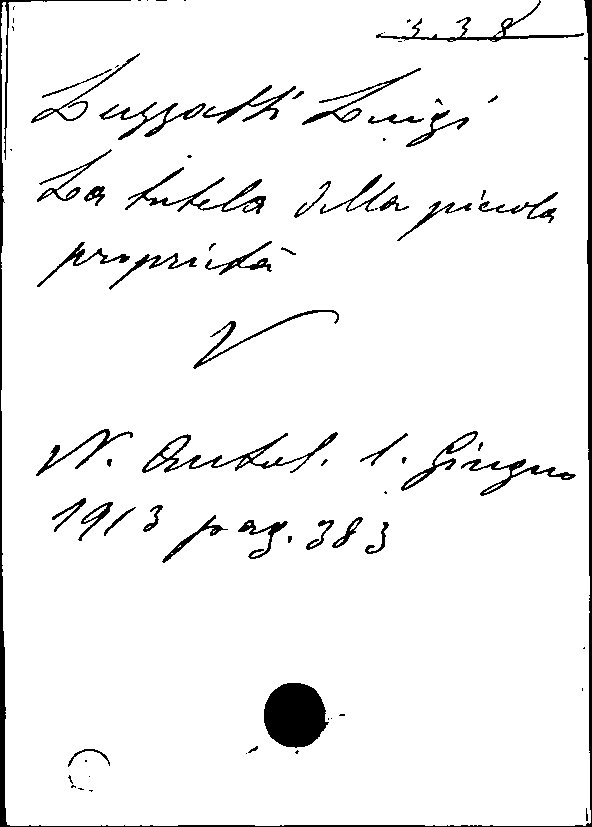 338
Luzzatti Luigi
La tutela della piccola
proprietà
V
N. Antol. 1. Giugno
1913 pag. 383